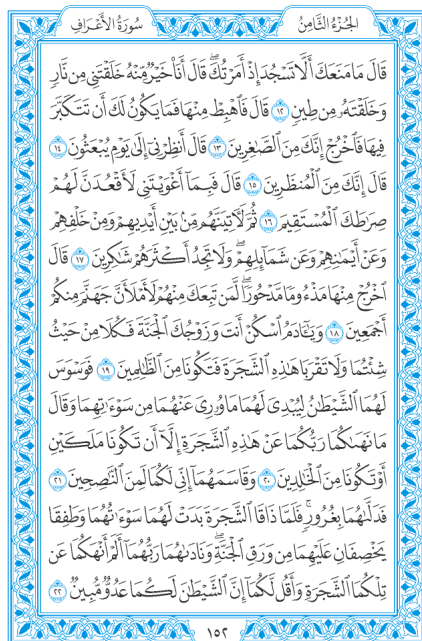 سُورَةُ الأَعۡرَافِ
الجُزۡءُ الثَّامِنُ
قَالَ مَا مَنَعَكَ أَلَّا تَسۡجُدَ إِذۡ أَمَرۡتُكَۖ قَالَ أَنَا۠ خَيۡرٞ مِّنۡهُ خَلَقۡتَنِي مِن نَّارٖ
وَخَلَقۡتَهُۥ مِن طِينٖ ١٢ قَالَ فَٱهۡبِطۡ مِنۡهَا فَمَا يَكُونُ لَكَ أَن تَتَكَبَّرَ
فِيهَا فَٱخۡرُجۡ إِنَّكَ مِنَ ٱلصَّٰغِرِينَ ١٣ قَالَ أَنظِرۡنِيٓ إِلَىٰ يَوۡمِ يُبۡعَثُونَ ١٤
قَالَ إِنَّكَ مِنَ ٱلۡمُنظَرِينَ ١٥ قَالَ فَبِمَآ أَغۡوَيۡتَنِي لَأَقۡعُدَنَّ لَهُمۡ
صِرَٰطَكَ ٱلۡمُسۡتَقِيمَ ١٦ ثُمَّ لَأٓتِيَنَّهُم مِّنۢ بَيۡنِ أَيۡدِيهِمۡ وَمِنۡ خَلۡفِهِمۡ
وَعَنۡ أَيۡمَٰنِهِمۡ وَعَن شَمَآئِلِهِمۡۖ وَلَا تَجِدُ أَكۡثَرَهُمۡ شَٰكِرِينَ ١٧ قَالَ
ٱخۡرُجۡ مِنۡهَا مَذۡءُومٗا مَّدۡحُورٗاۖ لَّمَن تَبِعَكَ مِنۡهُمۡ لَأَمۡلَأَنَّ جَهَنَّمَ مِنكُمۡ
أَجۡمَعِينَ ١٨ وَيَٰٓـَٔادَمُ ٱسۡكُنۡ أَنتَ وَزَوۡجُكَ ٱلۡجَنَّةَ فَكُلَا مِنۡ حَيۡثُ
شِئۡتُمَا وَلَا تَقۡرَبَا هَٰذِهِ ٱلشَّجَرَةَ فَتَكُونَا مِنَ ٱلظَّٰلِمِينَ ١٩ فَوَسۡوَسَ
لَهُمَا ٱلشَّيۡطَٰنُ لِيُبۡدِيَ لَهُمَا مَا وُۥرِيَ عَنۡهُمَا مِن سَوۡءَٰتِهِمَا وَقَالَ
مَا نَهَىٰكُمَا رَبُّكُمَا عَنۡ هَٰذِهِ ٱلشَّجَرَةِ إِلَّآ أَن تَكُونَا مَلَكَيۡنِ
أَوۡ تَكُونَا مِنَ ٱلۡخَٰلِدِينَ ٢٠ وَقَاسَمَهُمَآ إِنِّي لَكُمَا لَمِنَ ٱلنَّٰصِحِينَ ٢١
فَدَلَّىٰهُمَا بِغُرُورٖۚ فَلَمَّا ذَاقَا ٱلشَّجَرَةَ بَدَتۡ لَهُمَا سَوۡءَٰتُهُمَا وَطَفِقَا
يَخۡصِفَانِ عَلَيۡهِمَا مِن وَرَقِ ٱلۡجَنَّةِۖ وَنَادَىٰهُمَا رَبُّهُمَآ أَلَمۡ أَنۡهَكُمَا عَن
تِلۡكُمَا ٱلشَّجَرَةِ وَأَقُل لَّكُمَآ إِنَّ ٱلشَّيۡطَٰنَ لَكُمَا عَدُوّٞ مُّبِينٞ ٢٢
١٥٢